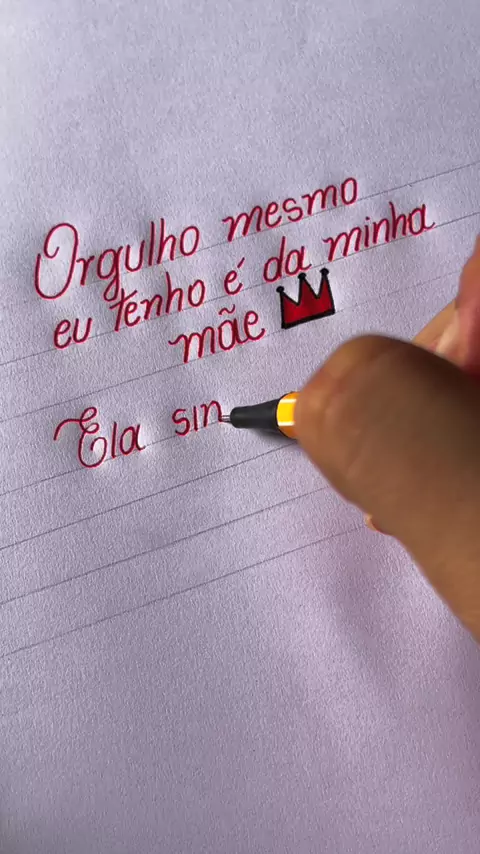 Orgulho mesmo
eu tenho é da minha
mãe
Ela sin